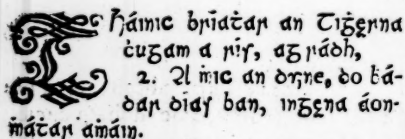 Tḣáinic bríaṫar an Tiġęrna
ċugam a rís, ag rádh,
2. A ṁic an dyne, do ḃá-
dar días ban, inġęna áon-
ṁáṫar aṁáin.